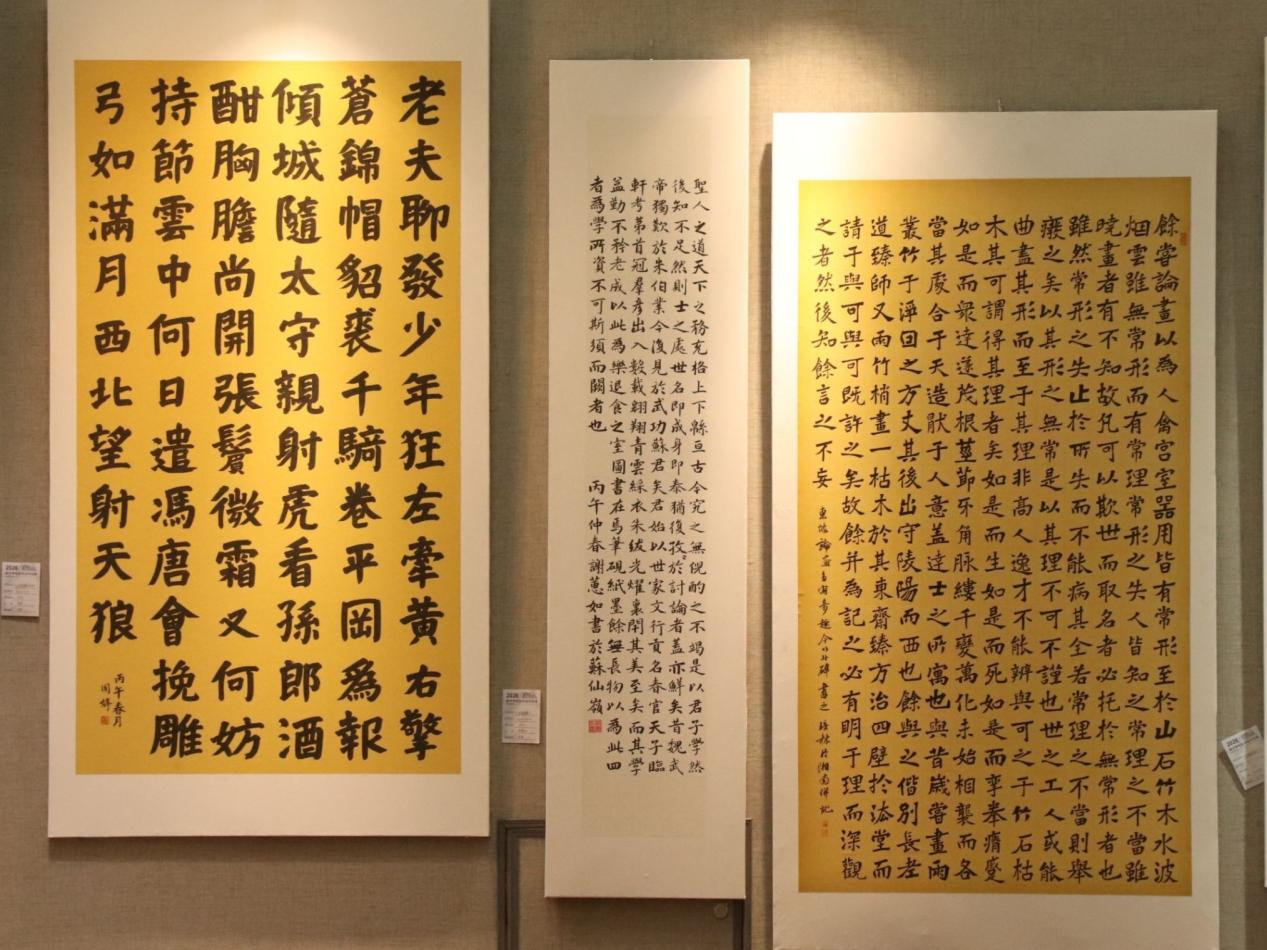 老夫聊發少年狂左牽黃右擎
蒼錦帽貂裘千騎卷平岡為報
傾城隨太守親射虎看孫郎酒
酣胸膽尚開張鬢微霜又何妨
持節雲中何日遣馮唐會挽雕
弓如滿月西北望射天狼
丙午春月
聖人之道天下之務充格上下緜亘古今究之無倪酌之不竭是以君子學然
後知不足然則士之處世名即成身即泰猶復孜於討論者蓋亦鮮矣昔魏武
帝獨歎於朱伯業今復見於武功蘇君矣君始以世家文行貢名春官天子臨
軒考第首冠羣彥出入數載翱翔青雲綵衣朱紱光耀裏閈其美至矣而其學
益勤不矜老成以此為樂退食之室圖書在焉筆硯紙墨餘無長物以為此四
者為學所資不可斯須而闕者也 丙午仲春謝蕙如書於蘇仙嶺
餘嘗論畫以為人禽宮室器用皆有常形至於山石竹木水波
烟雲雖無常形而有常理常形之失人皆知之常理之不當雖
曉畫者有不知故凡可以欺世而取名者必托於無常形者也
雖然常形之失止於所失而不能病其全若常理之不當則舉
廢之矣以其形之無常是以其理不可不謹也世之工人或能
曲盡其形而至于其理非高人逸才不能辨與可之于竹石枯
木其可謂得其理者矣如是而生如是而死如是而孿拳瘠蹙
如是而衆達遂茂根莖節牙角脉縷千變萬化未始相襲而各
當其處合于天造猒于人意蓋達士之所寓也與昔歲嘗畫兩
叢竹于淨因之方丈其後出守陵陽而西也餘與之偕別長老
道臻師又兩竹梢畫一枯木於其東齋臻方治四壁於法堂而
請于與可與可既許之矣故餘并為記之必有明于理而深觀
之者然後知餘言之不妄
2026
2026
2026